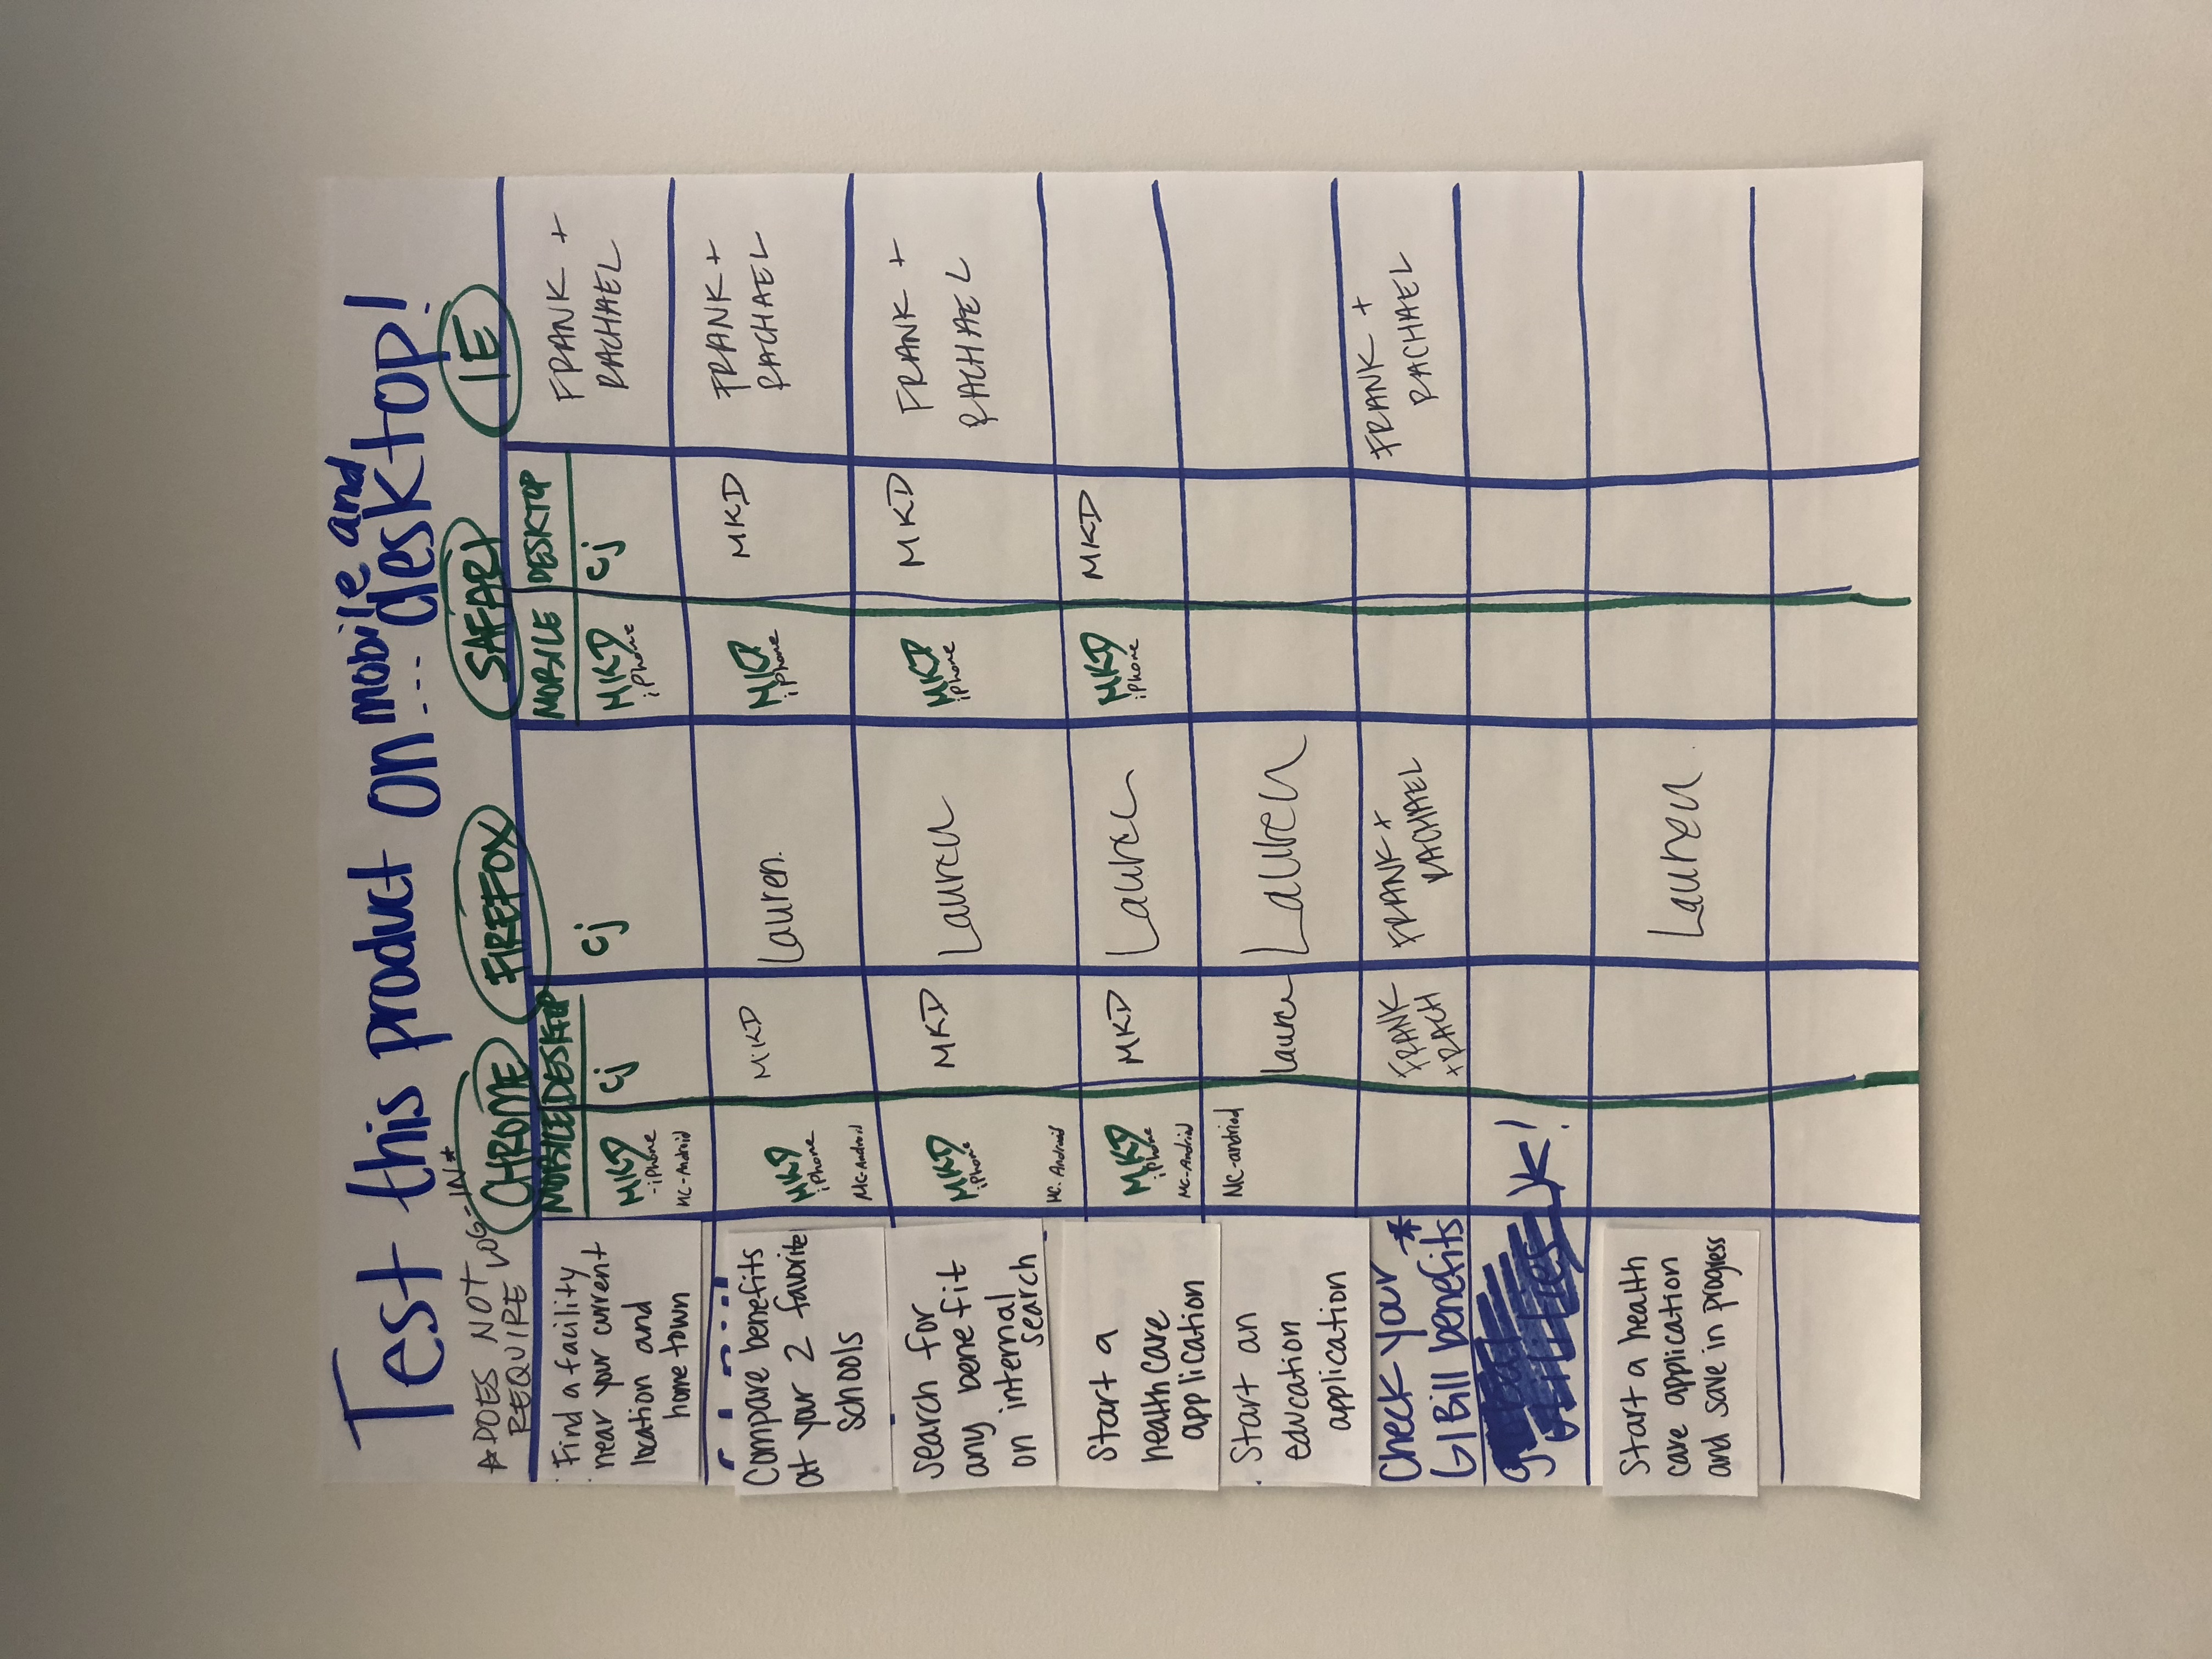 Test this product on mobile and
... desktop!
*DOES NOT
REQUIRE LOG-IN*
CHROME FIREFOX SAFARI IE
MOBILE DESKTOP MOBILE DESKTOP
Find a facility
near your current
location and
home town
MKD
-iPhone
MC-Android
cj
cj
MKD
iPhone
cj
FRANK +
RACHAEL
Compare benefits
at your 2 favorite
schools
MKD
iPhone
MC-Android
MKD
Lauren.
MKD
iPhone
MKD
FRANK +
RACHAEL
Search for
any benefit
on internal
search
MKD
iPhone
MC. Android
MKD
Lauren
MKD
iPhone
MKD
FRANK +
RACHAEL
Start a
health care
application
MKD
iPhone
MC-Andriod
MKD
Lauren
MKD
iPhone
MKD
Start an
education
application
MC-andriod
Lauren
Lauren
Check your *
GI Bill benefits
FRANK
+RACH
FRANK +
RACHAEL
FRANK +
RACHAEL
global
utilities JK!
Start a health
care application
and save in progress
Lauren